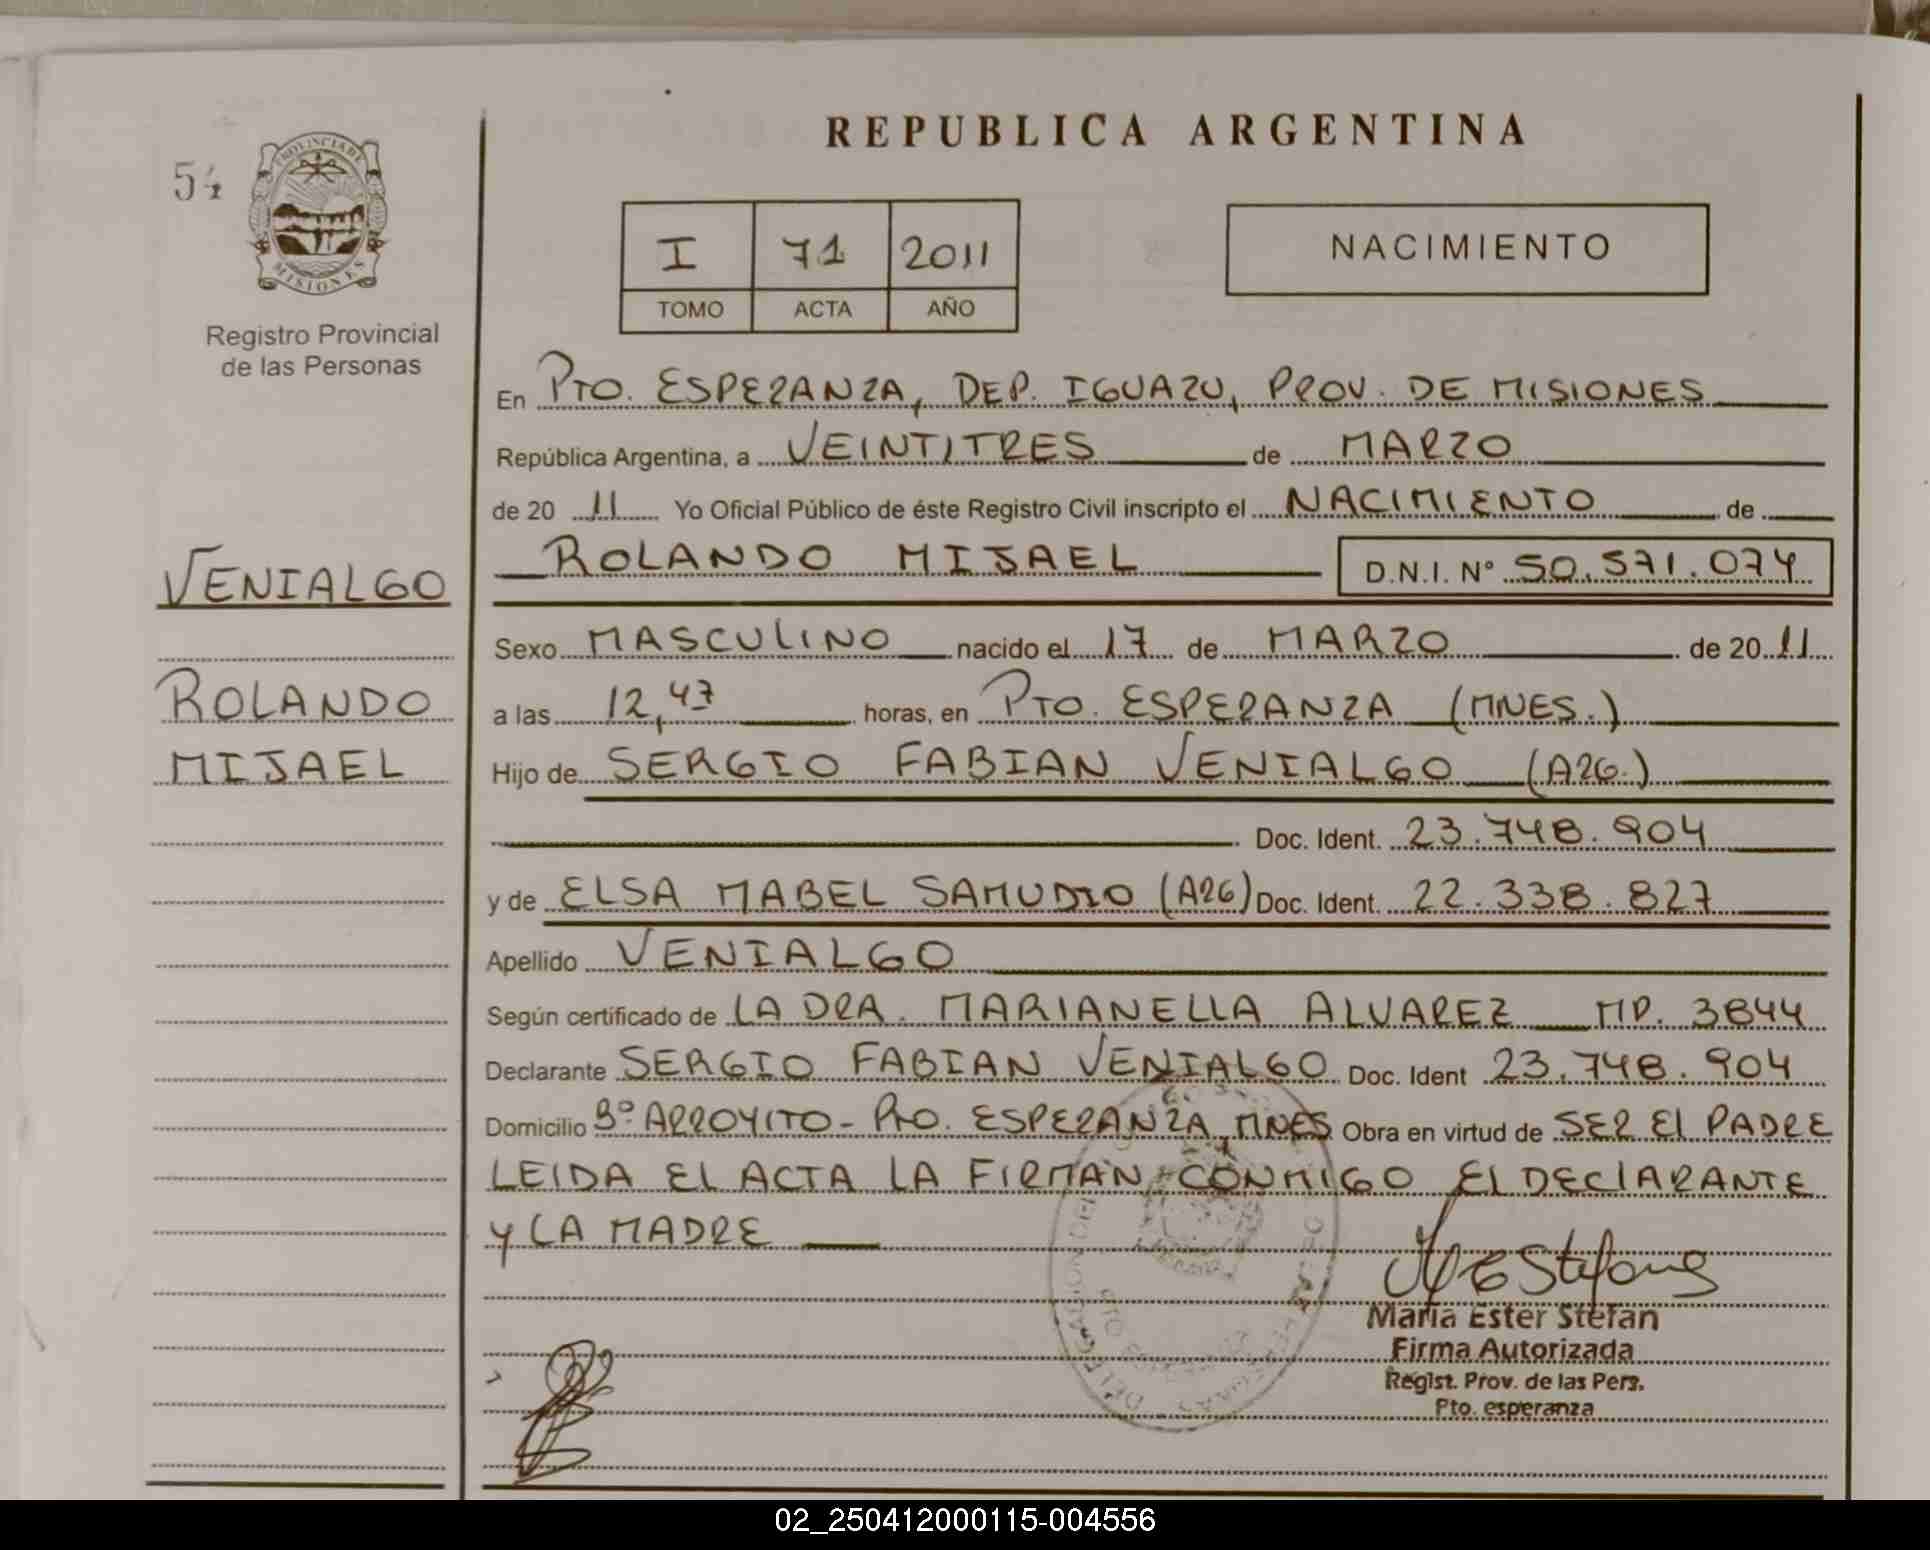 REPUBLICA ARGENTINA
54
PROVINCIA DE
MISIONES
Registro Provincial
de las Personas
I 71 2011
TOMO ACTA AÑO
NACIMIENTO
En PTO. ESPERANZA, DEP. IGUAZU, PROV. DE MISIONES
República Argentina, a VEINTITRES de MARZO
de 20 11 Yo Oficial Público de éste Registro Civil inscripto el NACIMIENTO de
ROLANDO MIJAEL D.N.I. Nº 50.571.074
VENIALGO
Sexo MASCULINO nacido el 17 de MARZO de 20 11
ROLANDO
a las 12,47 horas, en PTO. ESPERANZA (MNES.)
MIJAEL
Hijo de SERGIO FABIAN VENIALGO (ARG.)
Doc. Ident. 23.748.904
y de ELSA MABEL SAMUDIO (ARG) Doc. Ident. 22.338.827
Apellido VENIALGO
Según certificado de LA DRA. MARIANELLA ALVAREZ MP. 3844
Declarante SERGIO FABIAN VENIALGO Doc. Ident 23.748.904
Domicilio Bº ARROYITO - PTO. ESPERANZA, MNES Obra en virtud de SER El PADRE
LEIDA El ACTA LA FIRMAN CONMIGO El DEClARANTE
y LA MADRE
Maria Ester Stefan
Firma Autorizada
Regist. Prov. de las Pers.
Pto. esperanza
02_250412000115-004556